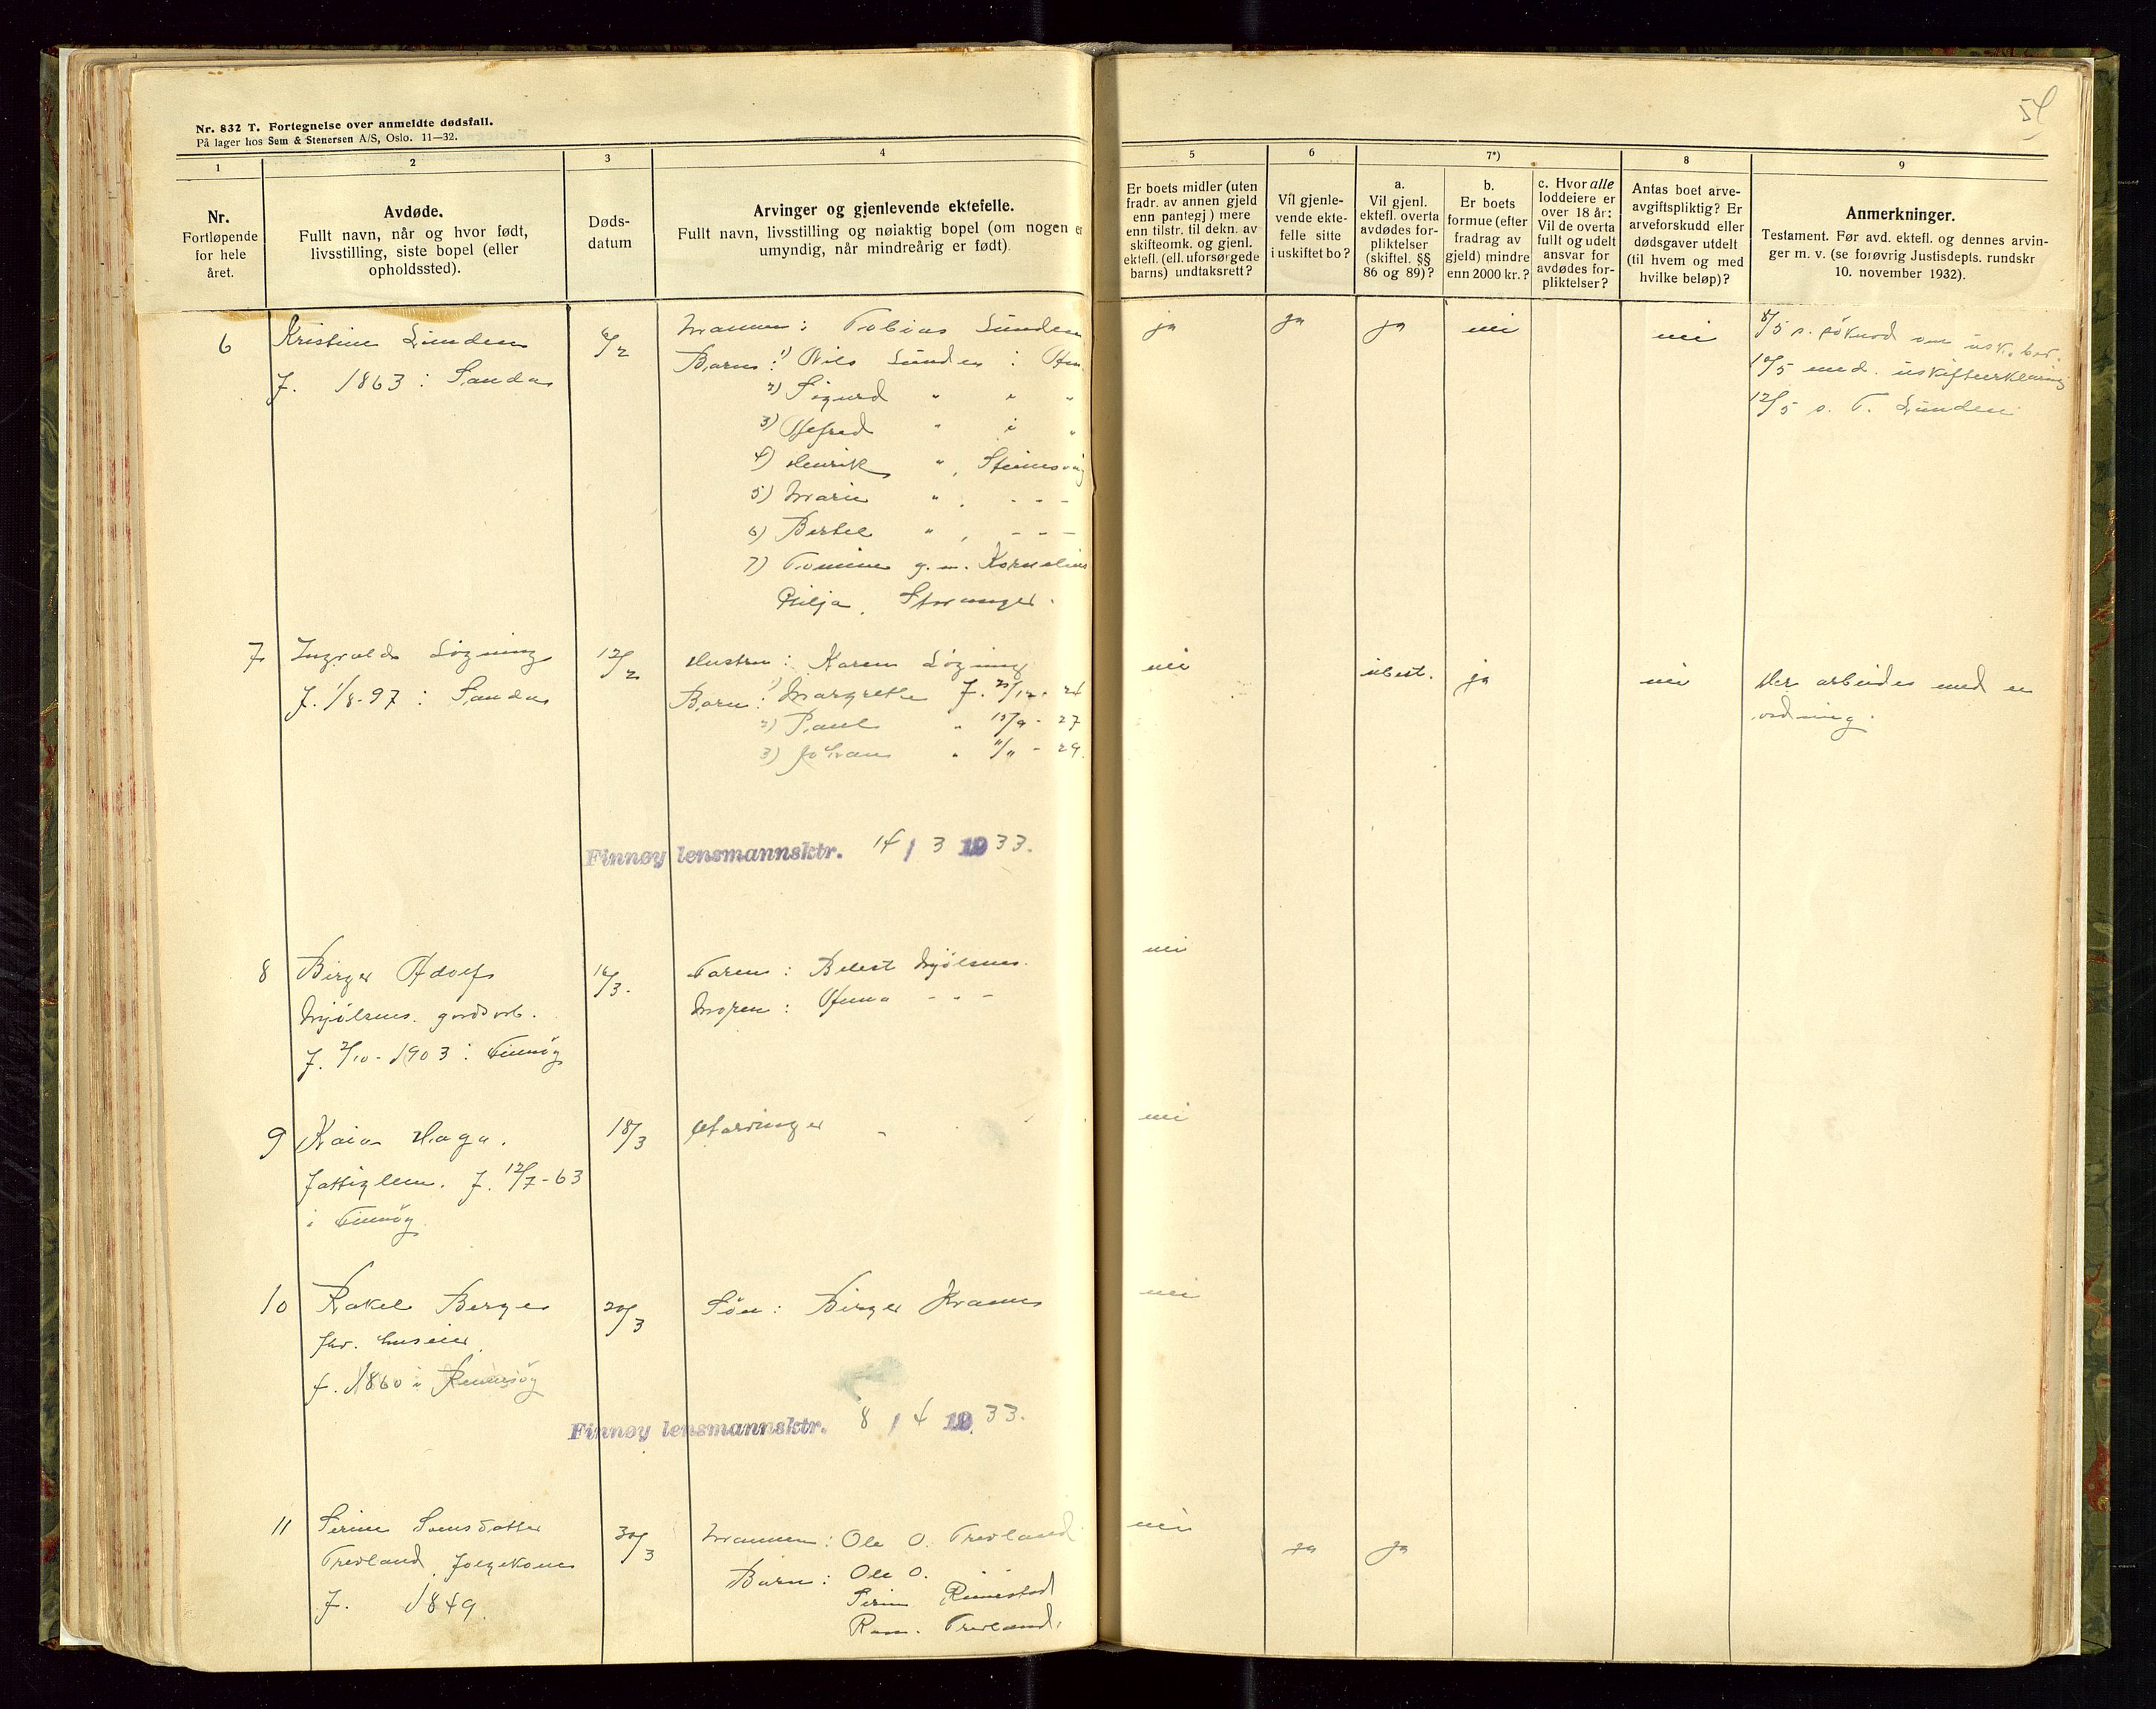 54
Nr. 832 T. Fortegnelse over anmeldte dødsfall.
På lager hos Sem & Stenersen A/S, Oslo. 11—32.
1
2
3
4
5
6
7*)
8
9
Nr.
Fortløpende
for hele
året.
Avdøde.
Fullt navn, når og hvor født,
livsstilling, siste bopel (eller
opholdssted).
Døds-
datum
Arvinger og gjenlevende ektefelle.
Fullt navn, livsstilling og nøiaktig bopel (om nogen er
umyndig, når mindreårig er født).
Er boets midler (uten
fradr. av annen gjeld
enn pantegj.) mere
enn tilstr. til dekn. av
skifteomk. og gjenl.
ektefl. (ell. uforsørgede
barns) undtaksrett?
Vil gjenle-
vende ekte-
felle sitte
i uskiftet bo?
a.
Vil gjenl.
ektefl. overta
avdødes for-
pliktelser
(skiftel. §§
86 og 89)?
b.
Er boets
formue (efter
fradrag av
gjeld) mindre
enn 2000 kr.?
c. Hvor alle
loddeiere er
over 18 år:
Vil de overta
fullt og udelt
ansvar for
avdødes for-
pliktelser?
Antas boet arve-
avgiftspliktig? Er
arveforskudd eller
dødsgaver utdelt
(til hvem og med
hvilke beløp)?
Anmerkninger.
Testament. Før avd. ektefl. og dennes arvin-
ger m. v. (se forøvrig Justisdepts. rundskr
10. november 1932).
6 Kristine Lunden 6/2 Mannen: Tobias Lunden ja ja ja nei nei
f. 1863 i Sanda Barn: 1) Nils Lunden i 10/5 med. uskifteerklæring
2) Sigurd " " " 12/5 s. T. Lunden
3) " i "
4) Henrik "
5) Marie " - - -
6) Bertel " , - - -
7) Tomine g.m. Kornelius
Stavanger.
7 Ingvald Løgning 12/2 Hustru: Karen Løgning nei ubest. ja nei Her arbeides med en
f. 1/8-97 i Sanda Barn: 1) Margrethe f. 29/12-24 ordning.
2) Paul " 15/9 - 27
3) Johan " 11/11 - 29.
Finnøy lensmannsktr. 14 / 3 1933.
8 Birger Adolf 16/3. Faren: Mjølsnes. nei
Mjølsnes. gårdarb. Moren: Anna - " -
f. 2/10-1903 i Finnøy
9 Kaia Haga. 18/3 Utarvinger nei
fattiglem. f. 12/7-63
i Finnøy
10 Rakel Berge 20/3 Søn: Birger nei
fhv. huseier
f. 1860 i Rennesøy
Finnøy lensmannsktr. 8 / 4 1933.
11 Serine 30/3 Mannen: Ole O. Trevland nei ja ja
Trevland. Barn: Ole O.
f. 1849. Serine Rimestad
Trevland.